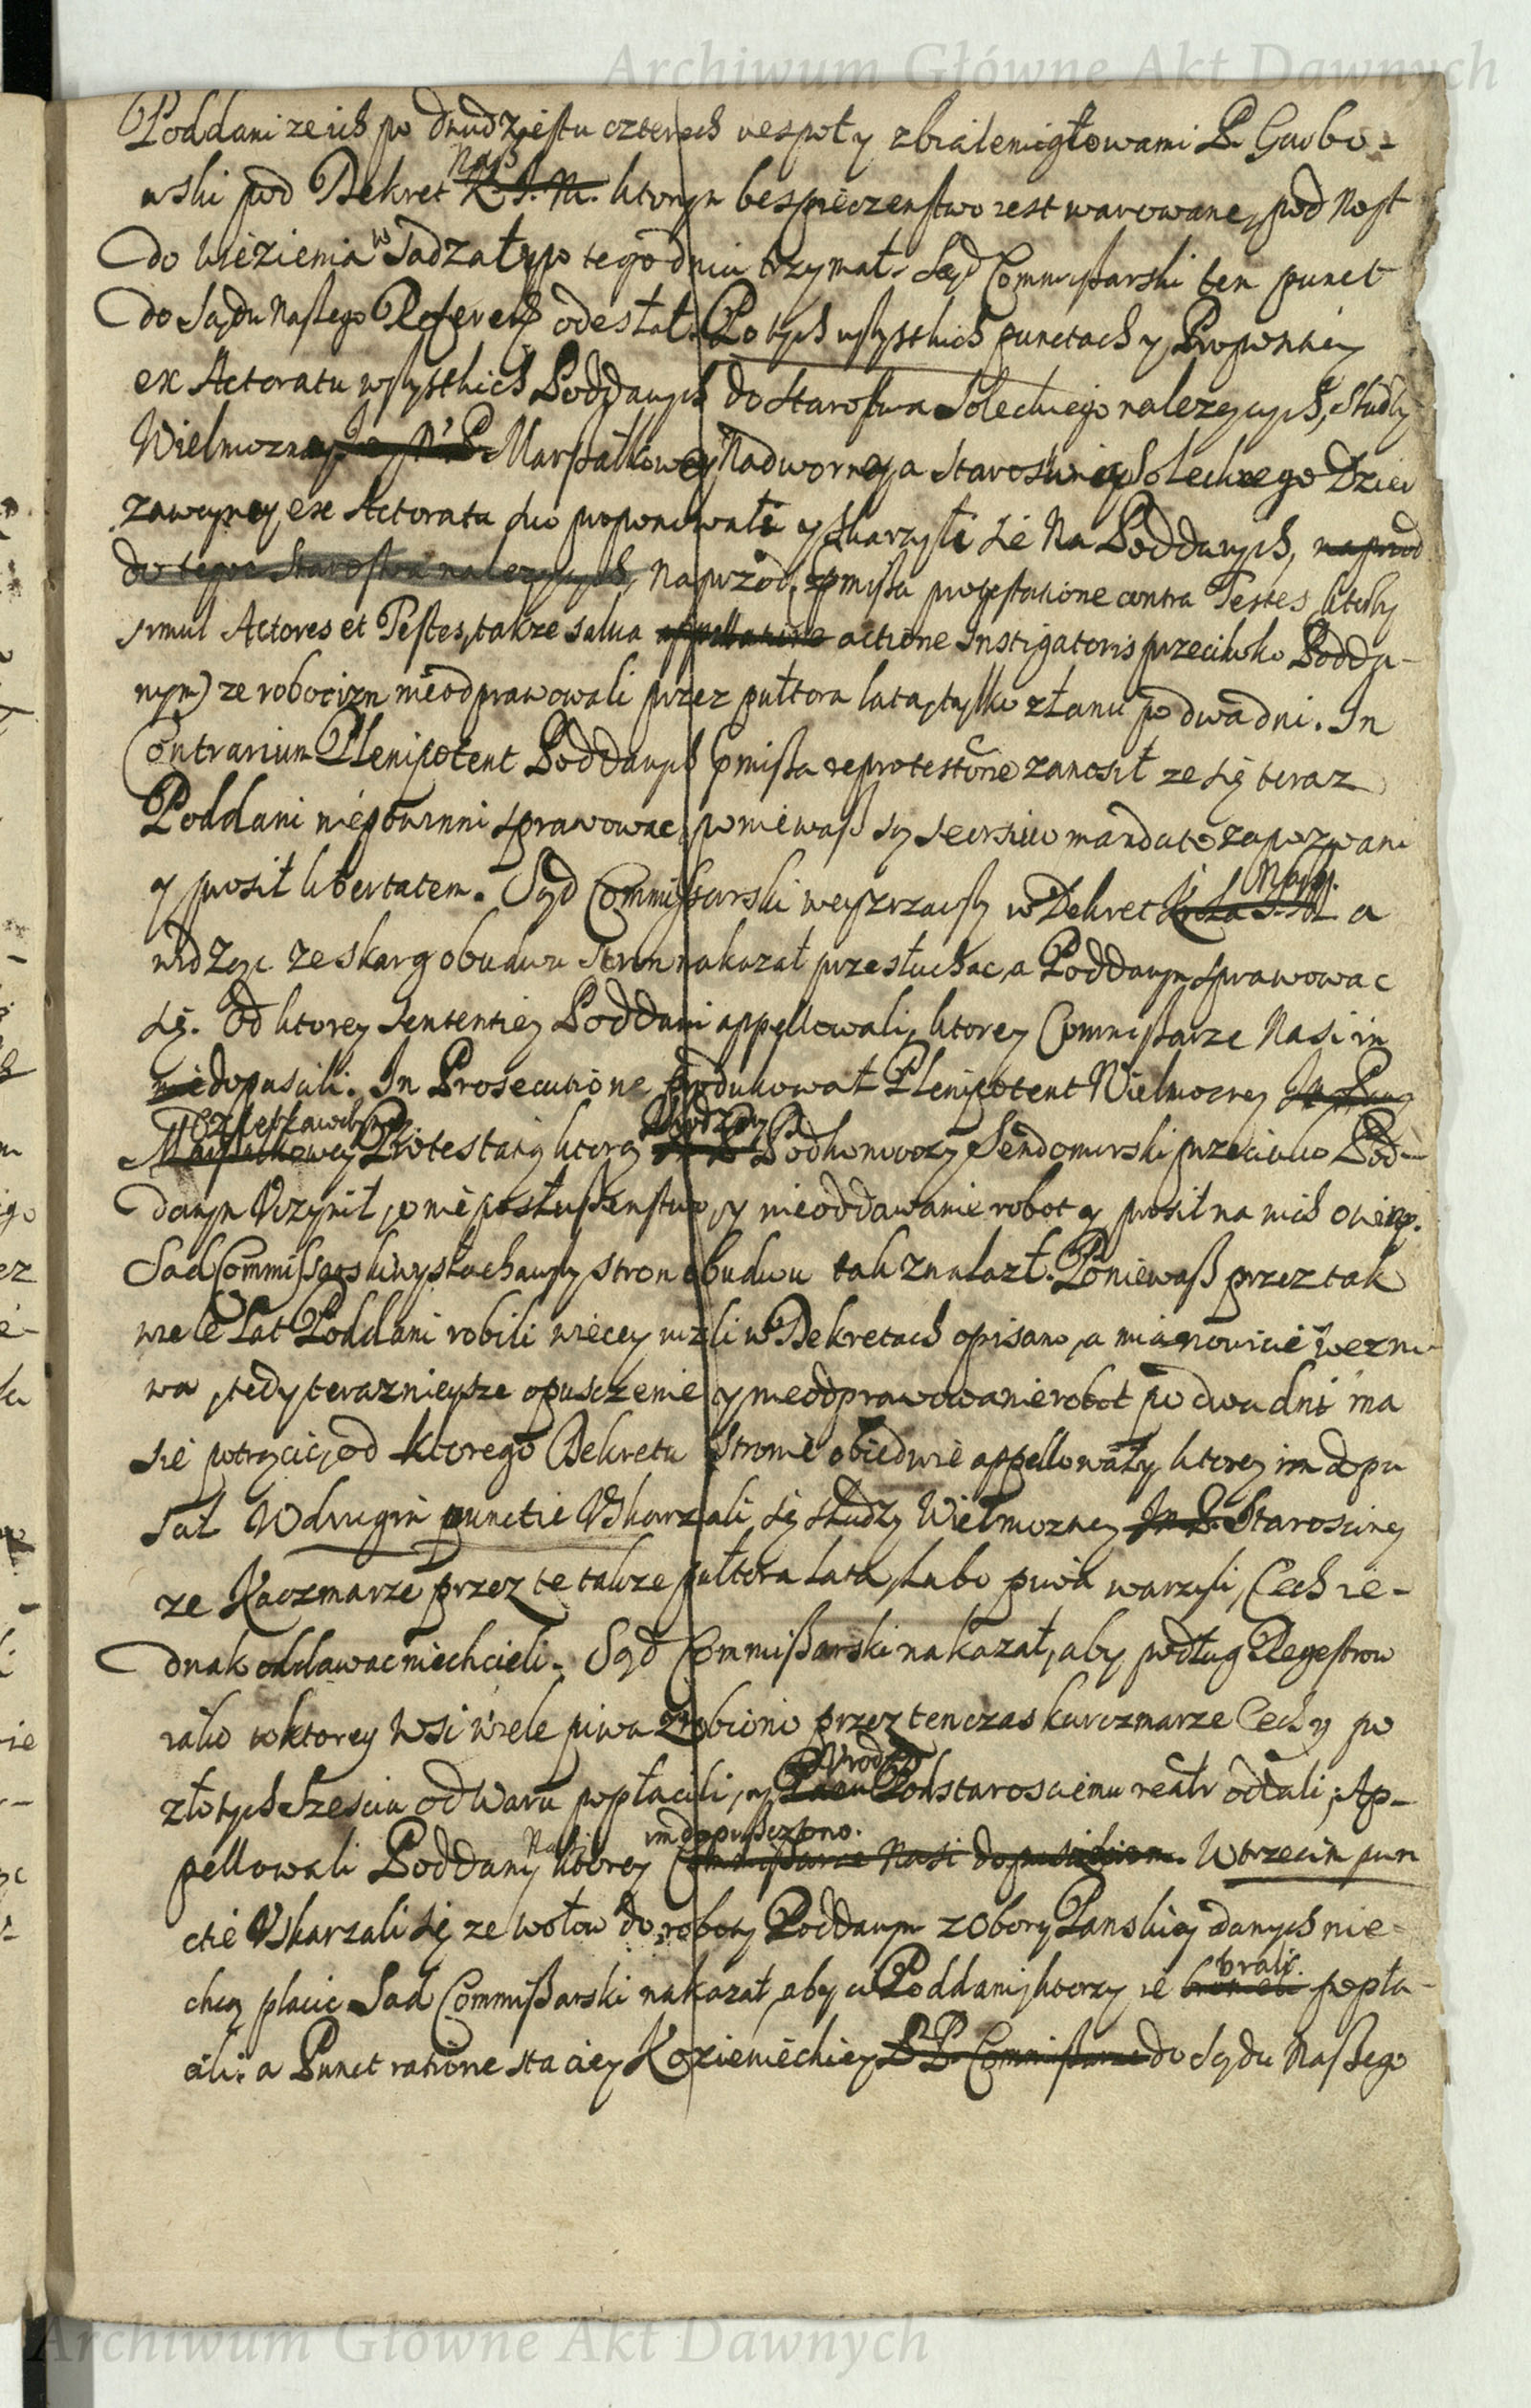 Archiwum Główne Akt Dawnych
Poddani ze ich po dwudziestu czterech wespoły z białemigłowami P. Grabo-
wski pod Dekret Nasz K. J. M. ktorym bespieczenstwo iest warowane, pod
do więzienia w sadzał y po tego dniu trzymał. Sąd Commissarski ten punct
do Sądu Naszego Referen. odesłał. Po tych wszystkich punctach y Propositiey
ex Actoratu wszystkich Poddanych do Starostwa Soleckiego nalezących, Słudzy
Wielmozney Marszałkowey Nadworney a Starosciney Soleckiego Dzier
zawczyney ex Actoratu suo proponowali y skarzyli się Na Poddanych, naprzod
do tego Starostwa nalezących, Naprzod, (pmissa protestatione contra Testes, ktorzy
simul Actores et Testes, takze salva appellatione actione Instigatoris przeciwko Podda-
nym) ze robocizn nieodprawowali przez pułtora lata, tylko z łanu po dwa dni. In
Contrarium Plenipotent Poddanych (pmissa reprotestone zanosił ze się teraz
Poddani niepowinni sprawowac, poniewasz są seorsivo mandato zapozwani
y prosił libertatem. Sąd Commissarski weyzrzawszy w Dekret Nasz a
widząc ze skarg obudwu stron nakazał przesłuchac, a Poddanym sprawowac
się. Od ktorey sententiey Poddani appellowali, ktorey Commissarze Nasi im
niedopuscili. In Prosecutione produkował Plenipotent Wielmozney
Marszałkowey Protestatią ktorą Urodzony Podkomorzy Sendomirski przeciwko Pod-
danym Uczynił, o nieposłuszenstwo, y nieoddawanie robot y prosił na nich
Sad Commissarski wysłuchawszy stron obudwu tak znalazł. Poniewasz przez tak
wiele Lat Poddani robili więcey nizli w Dekretach opisano, a mianowicie wezni-
wa, tedy teraznieysze opusczenie y nieodprawowanie robot po dwa dni ma
się potrącic, od ktorego Dekretu Stronie obiedwie appellowały, ktorey im dopu
scił W drugim punctie Uskarzali się słudzy Wielmozney Starosciney
ze Kaczmarze przez te takze pułtora lata, lubo piwa warzyli, Cech ie-
dnak oddawac niechcieli. Sąd Commissarski nakazał, aby podług Regestrow
iako w ktorey Wsi wiele piwa zrobiono przez ten czas karczmarze Cechy po
złotych szesciu od Waru popłacili, y Panu Urodzo Podstarosciemu realr oddali; Ap-
pellowali Poddani Nasi ktorey im dopusczono. Commissarze Nasi dopuscili im. W trzecim pun
ctie Uskarzali się ze wołow do roboty Poddanym z Obory Panskiey danych nie-
chcą płacic Sad Commissarski nakazał, aby ci Poddani, ktorzy ie brali popła-
cili: a Punct ratione staciey Kozienieckiey PP. Commissarze do Sądu Naszego
Archiwum Główne Akt Dawnych